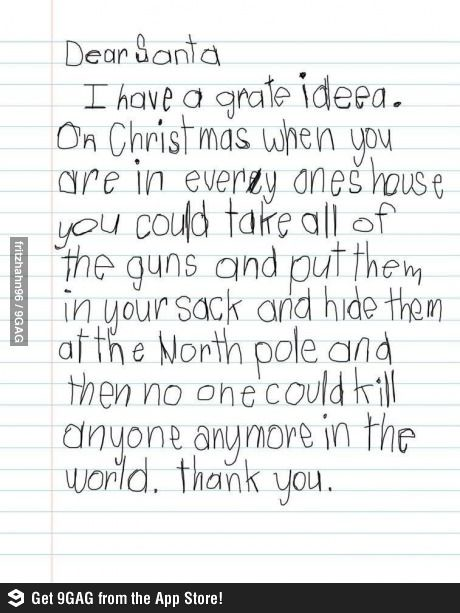 Dear Santa
I have a grate ideea.
On Christmas when you
are in everzy ones house
you could take all of
the guns and put them
in your sack and hide them
at the North pole and
then no one could kill
anyone anymore in the
world. thank you.
fritzhahn96 / 9GAG
Get 9GAG from the App Store!